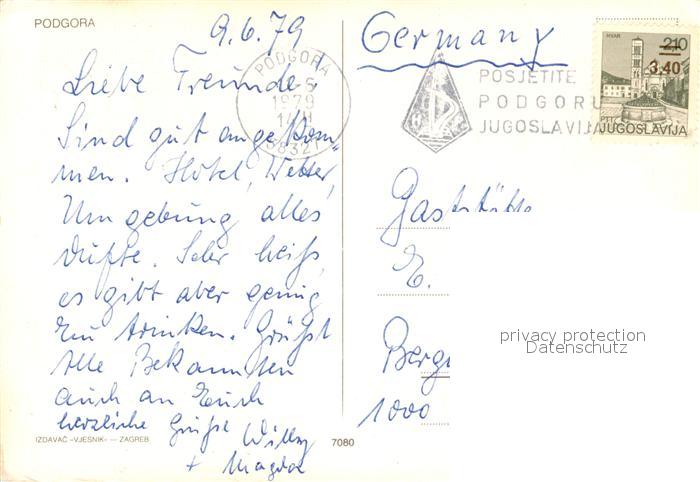 PODGORA
9.6.79
Germany
Liebe Freunde,
Sind gut angekom-
men. Hotel, Wetter,
Umgebung alles
dufte. Sehr heiß,
es gibt aber genug
zu trinken. Grüßt
Alle Bekannten
auch an Euch
herzliche Grüße Willy
+ Magda
PODGORA
1979
58327
POSJETITE
PODGORU
JUGOSLAVIJA
HVAR
2.10
3.40
PTT JUGOSLAVIJA
Gaststätte
E.
Berg
1000
privacy protection
Datenschutz
IZDAVAČ »VJESNIK« — ZAGREB
7080